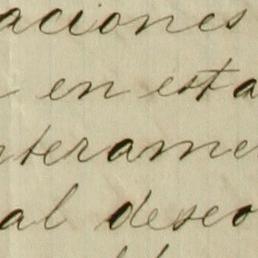 aciones
en esta
nterame
al deseo